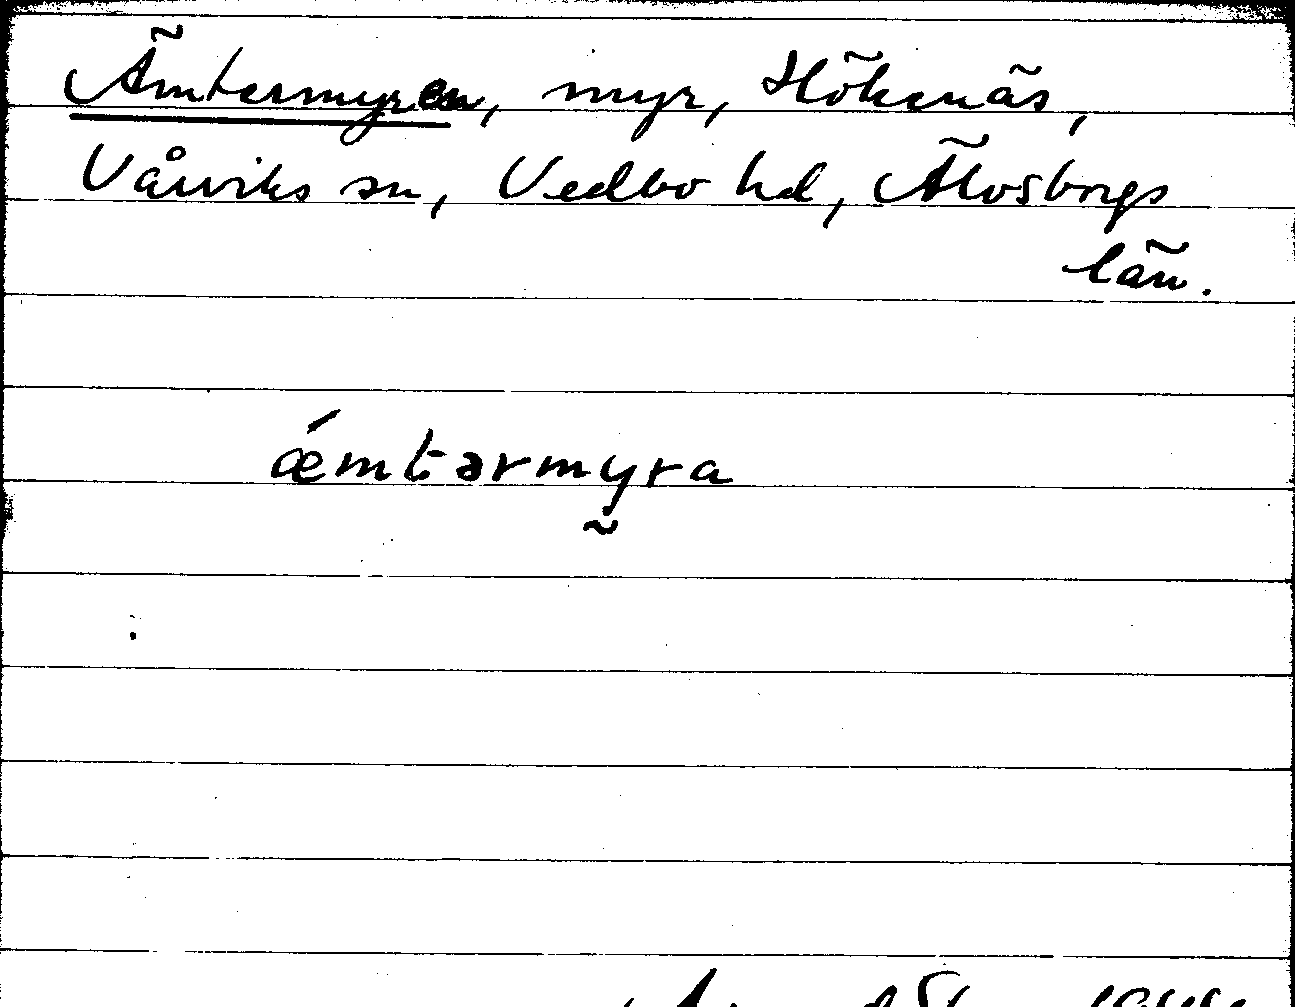 Ämtermyren, myr, Hökenäs,
Vårviks sn, Vedbo hd, Älvsborgs
län.
ǽmtərmyra